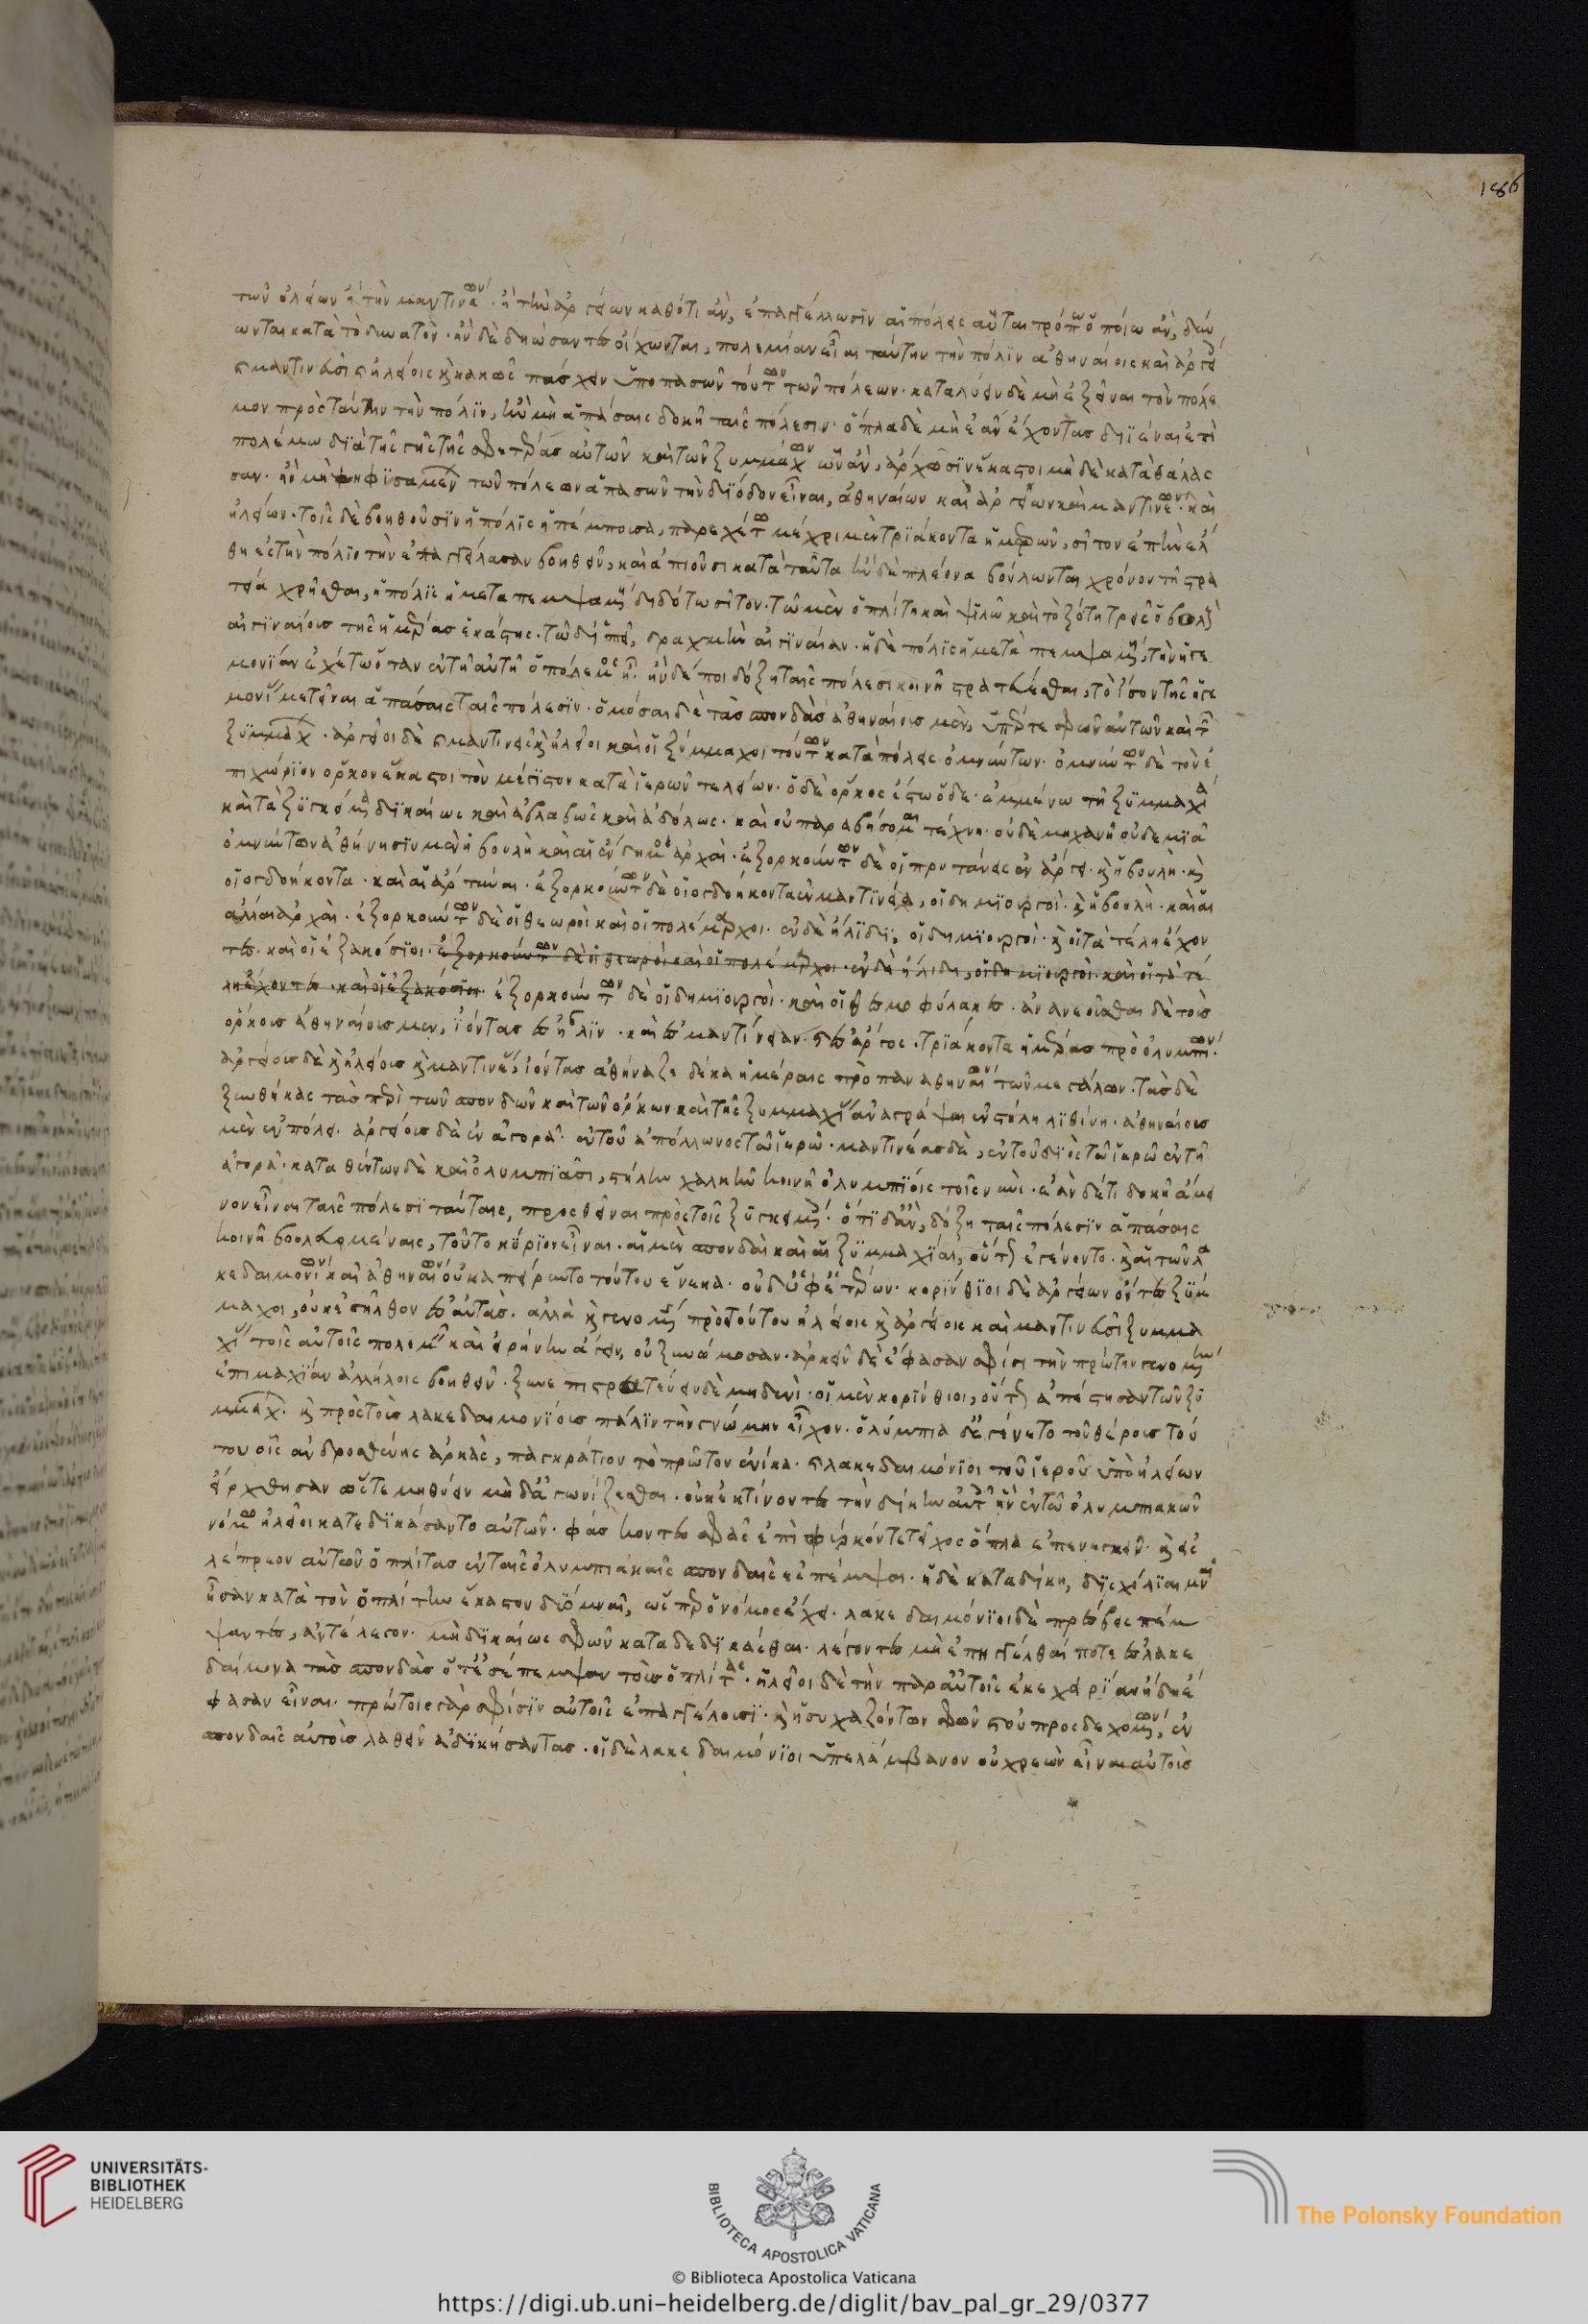 186
τῶν ἠλείων ἢ τὴν μαντινέων· ἢ τὴν ἀργείων καθότι ἂν, ἐπαγγέλλωσϊν αἱ πόλεις αὗται τρόπω ὁποίω ἂν, δύν
ωνται κατὰ τὸ δυνατὸν· ἢν δὲ δηώσαντες οἴχωνται, πολεμίαν εἶναι ταύτην τὴν πόλϊν ἀθηναίοις καὶ ἀργεί
ς μαντινεῦσι ς ἠλείοις ϗ κακῶς πάσχειν ὑπο πασῶν τούτων τῶν πόλεων· καταλύειν δὲ μὴ ἐξεῖναι τὸν πόλε
μον πρὸς ταύτην τὴν πόλϊν, ἢν μὴ ἁπάσαις δοκῆ ταῖς πόλεσιν· ὅπλα δὲ μὴ ἐᾶν ἔχοντας διϊέναι ἐπὶ
πολέμω διὰ τῆς γῆς τῆς σφετέρας αὐτῶν καὶ τῶν ξυμμάχων ὧν ἂν, ἄρχωσϊν ἕκαστοι μὴ δὲ κατὰ θάλασ
σαν· ἢν μὴ ψηφϊσαμένων τῶν πόλεων ἁπασῶν τὴν δίοδον εἶναι, ἀθηναίων καὶ ἀργείων καὶ μαντινέων· καὶ
ἠλείων· τοῖς δὲ βοηθοῦσϊν ἡ πόλϊς ἡ πέμπουσα, παρεχέτω μέχρι μὲν τρϊάκοντα ἡμερῶν, σῖτον ἐπὴν ἔλ
θη ἐς τὴν πόλϊν τὴν ἐπαγγείλασαν βοηθεῖν, καὶ ἀπιοῦσι κατὰ ταῦτα ἢν δὲ πλέονα βούλωνται χρόνον τῆ στρα
τεία χρῆσθαι, ἡ πόλϊς ἡ μεταπεμψαμένη διδότω σῖτον· τῶ μὲν ὁπλίτη καὶ ψϊλῶ καὶ τοξότη τρεῖς ὀβολοὺς
αἰγϊναίους τῆς ἡμέρας ἑκάστης· τῶ δ' ἱππεῖ, δραχμὴν αἰγϊναίαν· ἡ δὲ πόλϊς ἡ μεταπεμψαμένη, τὴν ἡγε
μονίαν ἐχέτω ὅταν ἐν τῆ αὐτῆ ὁ πόλεμος ᾖ· ἢν δέ ποι δόξη ταῖς πόλεσι κοινῆ στρατεύεσθαι, τὸ ἴσον τῆς ἡγε
μονίας μετεῖναι ἁπάσαις ταῖς πόλεσϊν· ὀμόσαι δὲ τὰς σπονδὰς ἀθηναίους μὲν, ὑπέρ τε σφῶν αὐτῶν καὶ τῶν
ξυμμάχων· ἀργεῖοι δὲ ς μαντινεῖς ϗ ἠλεῖοι καὶ οἱ ξύμμαχοι τούτων κατὰ πόλεις ὀμνύντων· ὀμνύντων δὲ τὸν ἐ
πιχώρϊον ὅρκον ἕκαστοι τὸν μέγϊστον κατὰ ἱερῶν τελείων· ὁ δὲ ὅρκος ἔστω ὅδε· ἐμμένω τῆ ξυμμαχία
κατὰ ξυγκείμενα δϊκαίως καὶ ἀβλαβῶς καὶ ἀδόλως· καὶ οὐ παραβήσομαι τέχνη· οὐδὲ μηχανῆ οὐδεμϊᾶ
ὀμνύντων ἀθήνησϊν μὲν ἡ βουλὴ καὶ αἱ ἔνδημοι ἀρχαὶ· ἐξορκούντων δὲ οἱ πρυτάνεις ἐν ἄργει· ϗ ἡ βουλὴ· ϗ
οἱ ὀγδοήκοντα· καὶ αἱ ἀρτύναι· ἐξορκούντων δὲ οἱ ὀγδοήκοντα ἐν μαντϊνεία, οἱ δημϊουργοὶ· ϗ ἡ βουλὴ· καὶ αἱ
ἄλλαι ἀρχαὶ· ἐξορκούντων δὲ οἱ θεωροὶ καὶ οἱ πολέμαρχοι· ἐν δὲ ἤλϊδι, οἱ δημϊουργοὶ· ϗ οἱ τὰ τέλη ἔχον
τες· καὶ οἱ ἑξακόσϊοι· ἐξορκούντων δὲ οἱ θεωροὶ καὶ οἱ πολέμαρχοι· ἐν δὲ ἤλιδι, οἱ δημϊουργοὶ· καὶ οἱ τὰ τέ
λη ἔχοντες· καὶ οἱ ἑξακόσϊοι· ἐξορκούντων δὲ οἱ δημϊουργοὶ· καὶ οἱ θεσμοφύλακες· ἀνανεοῦσθαι δὲ τοὺς
ὅρκους ἀθηναίους μεν, ἰόντας ἐς ἤλϊν· καὶ ἐς μαντίνειαν· ς ἐς ἄργος· τρϊάκοντα ἡμέρας πρὸ ὀλυμπίων·
ἀργείους δὲ ϗ ἠλείους ϗ μαντινέας, ἰόντας ἀθήναζε δέκα ἡμέραις πρὸ παναθηναίων τῶν μεγάλων· τὰς δὲ
ξυνθήκας τὰς περὶ τῶν σπονδῶν καὶ τῶν ὅρκων καὶ τῆς ξυμμαχίας ἀναγράψαι ἐν στήλη λϊθίνη· ἀθηναίους
μὲν ἐν πόλει· ἀργείους δὲ ἐν ἀγορᾶ· ἐν τοῦ ἀπόλλωνος τῶ ἱερῶ· μαντινέας δὲ, ἐν τοῦ διὸς τῶ ἱερῶ ἐν τῆ
ἀγορᾶ· καταθέντων δὲ καὶ ὀλυμπίασι, στήλην χαλκῆν κοινῆ ὀλυμπίοις τοῖς νυνὶ· ἐὰν δέ τι δοκῆ ἄμει
νον εἶναι ταῖς πόλεσϊ ταύταις, προσθεῖναι πρὸς τοῖς ξυγκειμένοις· ὅ τϊ δ' ἂν, δόξη ταῖς πόλεσϊν ἁπάσαις
κοινῆ βουλευομέναις, τοῦτο κύρϊον εἶναι· αἱ μὲν σπονδαὶ καὶ αἱ ξυμμαχίαι, οὕτως ἐγένοντο· ϗ αἱ τῶν λα
κεδαιμονίων καὶ ἀθηναίων οὐκ ἀπείρηντο τούτου ἕνεκα· οὐδ' ὑφ' ἑτέρων· κορίνθϊοι δὲ ἀργείων ὄντες ξύμ
μαχοι, οὐκ ἐσῆλθον ἐς αὐτὰς· ἀλλὰ ϗ γενομένης πρὸ τούτου ἠλείοις ϗ ἀργείοις καὶ μαντινεῦσι ξυμμα
χίας τοῖς αὐτοῖς πολεμεῖν καὶ εἰρήνην ἄγειν, οὐ ξυνώμοσαν· ἀρκεῖν δὲ ἔφασαν σφίσι τὴν πρώτην γενομένην
ἐπιμαχίαν ἀλλήλοις βοηθεῖν· ξυνεπιστρατεύειν δὲ μηδενὶ· οἱ μὲν κορίνθιοι, οὕτως ἀπέστησαν τῶν ξυ
μμάχων· ϗ πρὸς τοὺς λακεδαιμονίους πάλϊν τὴν γνώμην εἶχον· ὀλύμπια δ' ἐγένετο τοῦ θέρους τού
του οἷς ἀνδροσθένης ἀρκὰς, παγκράτιον τὸ πρῶτον ἐνίκα· ς λακεδαιμόνϊοι τοῦ ἱεροῦ ὑπὸ ἠλείων
εἴρχθησαν ὥστε μὴ θύειν μὴ δ' ἀγωνίζεσθαι· οὐκ ἐκτίνοντες τὴν δίκην αὐτοῖς ἣν ἐν τῶ ὀλυμπιακῶ
νόμω ἠλεῖοι κατεδϊκάσαντο αὐτῶν· φάσκοντες σφᾶς ἐπὶ φύρκόν τε τεῖχος ὅπλα ἐπενεγκεῖν· ϗ ἐς
λέπρεον αὐτῶν ὁπλίτας ἐν ταῖς ὀλυμπιακαῖς σπονδαῖς ἐσπέμψαι· ἡ δὲ καταδίκη, δϊσχίλϊαι μναῖ
ἦσαν κατὰ τὸν ὁπλίτην ἕκαστον δύο μναῖ, ὥσπερ ὁ νόμος ἔχει· λακεδαιμόνϊοι δὲ πρέσβεις πέμ
ψαντες, ἀντέλεγον· μὴ δϊκαίως σφῶν καταδεδϊκάσθαι· λέγοντες μὴ ἐπηγγέλθαί ποτε ἐς λακε
δαίμονα τὰς σπονδὰς ὅτ' ἐσέπεμψαν τοὺς ὁπλίτας· ἠλεῖοι δὲ τὴν παρ' αὐτοῖς ἐκεχειρίαν ἤδη ἔ
φασαν εἶναι· πρώτοις γὰρ σφίσϊν αὐτοῖς ἐπαγγέλουσϊ· ϗ ἡσυχαζόντων σφῶν ς οὐ προσδεχομένων, ἐν
σπονδαῖς αὐτοὺς λαθεῖν ἀδϊκήσαντας· οἱ δὲ λακεδαιμόνϊοι ὑπελάμβανον οὐ χρεὼν εἶναι αὐτοὺς
UNIVERSITÄTS-
BIBLIOTHEK
HEIDELBERG
BIBLIOTECA APOSTOLICA VATICANA
The Polonsky Foundation
© Biblioteca Apostolica Vaticana
https://digi.ub.uni-heidelberg.de/diglit/bav_pal_gr_29/0377